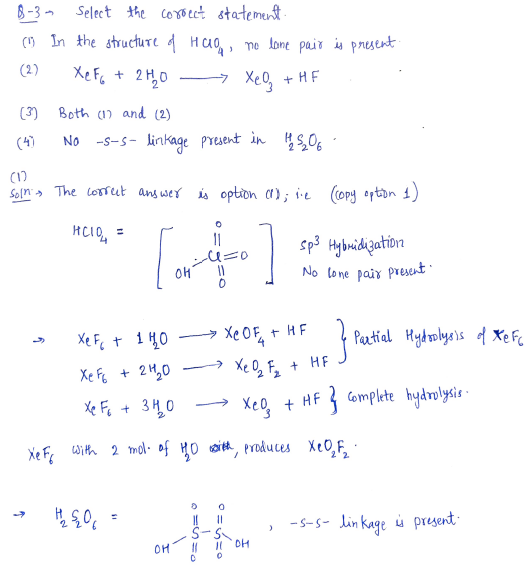 Q-3 → Select the correct statement.
(1) In the structure of HClO₄, no lone pair is present.
(2) XeF₆ + 2H₂O ⟶ XeO₃ + HF
(3) Both (1) and (2)
(4) No -S-S- linkage present in H₂S₂O₆.
(1)
Soln → The correct answer is option (1); i.e (copy option 1)
HClO₄ = [ O
Cl=O
OH O ] sp³ Hybridization
No lone pair present.
→ XeF₆ + 1H₂O ⟶ XeOF₄ + HF } Partial Hydrolysis of XeF₆
XeF₆ + 2H₂O ⟶ XeO₂F₂ + HF
XeF₆ + 3H₂O ⟶ XeO₃ + HF } Complete hydrolysis.
XeF₆ with 2 mol. of H₂O, produces XeO₂F₂.
O O
→ H₂S₂O₆ = S-S , -S-S- linkage is present.
OH O O OH